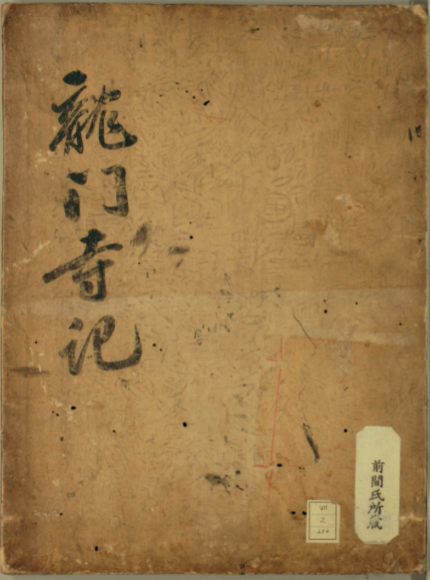 龍门寺记
前間氏所蔵